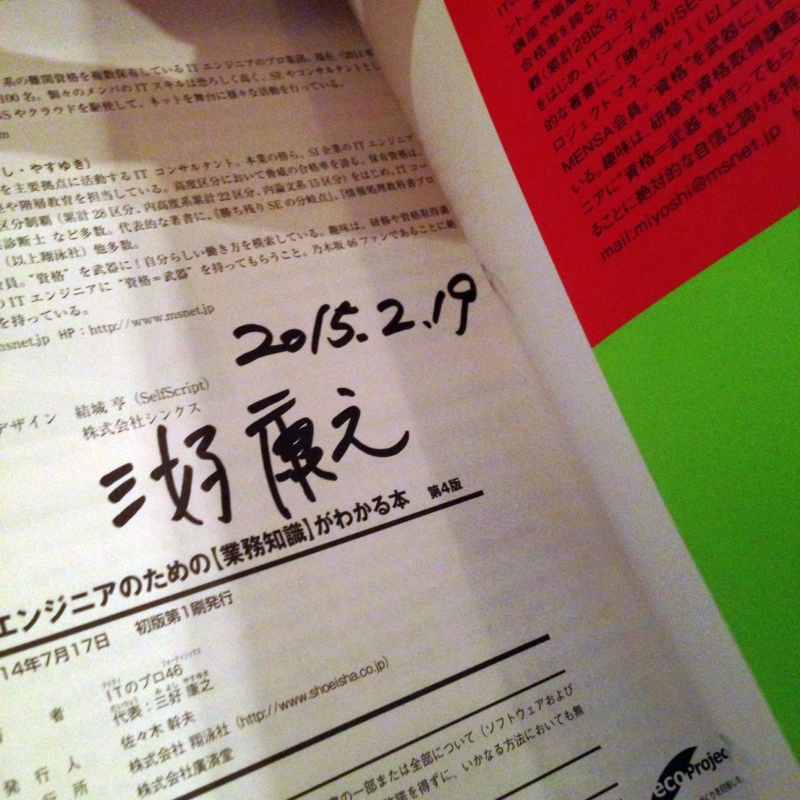 系の難関資格を複数保有しているITエンジニアのプロ集団。現在(2014年
100名。個々のメンバのITスキルは恐ろしく高く、SEやコンサルタントとし
NSやクラウドを駆使して、ネットを舞台に様々な活動を行っている。
om
し・やすゆき)
を主要拠点に活動するIT コンサルタント。本業の傍ら、SI企業のITエンジニア
や階層教育を担当している。高度区分において脅威の合格率を誇る。保有資格は、
区分制覇(累計28区分、内高度系累計22区分、内論文系15区分)をはじめ、ITコー
診断士 など多数。代表的な著書に、『勝ち残りSEの分岐点』、『情報処理教科書プロ
(以上翔泳社)他多数。
会員。“資格”を武器に!自分らしい働き方を模索している。趣味は、研修や資格取得講
のITエンジニアに“資格=武器”を持ってもらうこと。乃木坂46ファンであることに絶
を持っている。
msnet.jp HP:http://www.msnet.jp
2015.2.19
デザイン 結城 亨(SelfScript)
株式会社シンクス
三好 康之
エンジニアのための【業務知識】がわかる本 第4版
14年7月17日 初版第1刷発行
者 ITのプロ46
代表:三好 康之
発行人 佐々木 幹夫
行所 株式会社 翔泳社(http://www.shoeisha.co.jp)
株式会社廣済堂
の一部または全部について(ソフトウェアおよび
許諾を得ずに、いかなる方法においても無
講座や階層
合格率を誇る。
覇(累計28区分、
をはじめ、ITコーディネ
的な著書に、『勝ち残りSE
ロジェクトマネージャ』(以上
MENSA会員。“資格”を武器に!自
いる。趣味は、研修や資格取得講座
ニアに“資格=武器”を持ってもらう
ることに絶対的な自信と誇りを持
mail:miyoshi@msnet.jp
eco Project